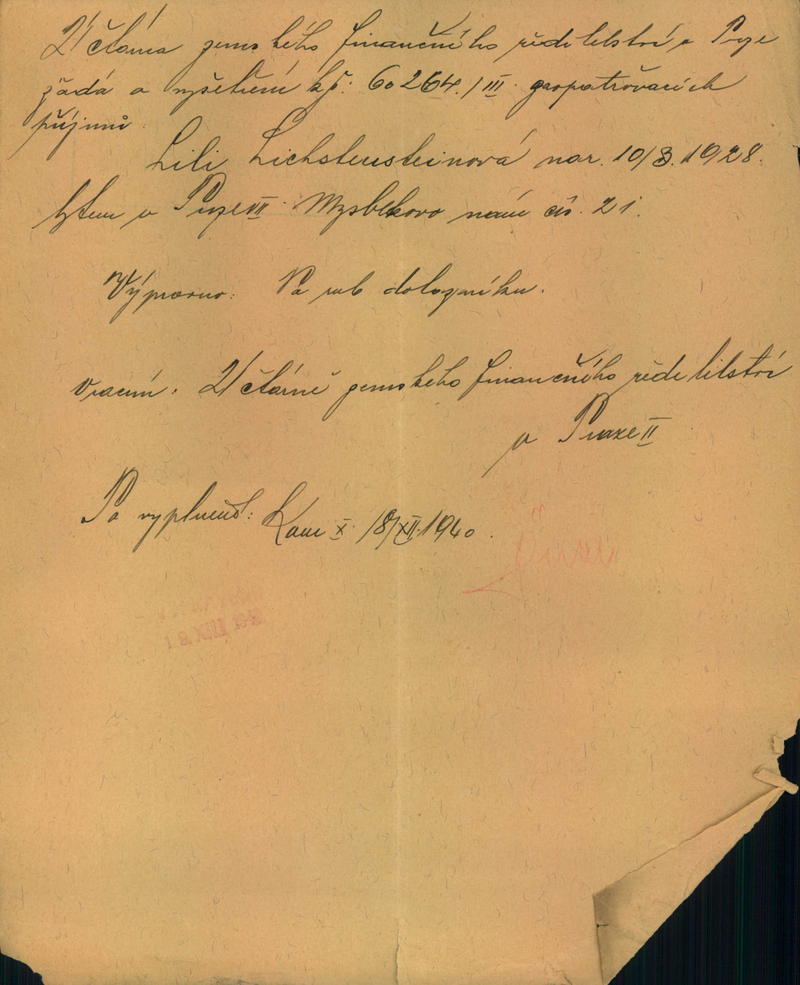 Účtárna zemského finančního ředitelství v Praze
žádá o vyšetření kčj: 60264./III. zaopatřovacích
příjmů
Lili Lichstensteinová nar. 10/3. 1928.
bytem v Praze VII. Myslbekovo nám čís. 21.
Výpravna: Na rub dotazníku.
Vracím. Účtárně zemského finančního ředitelství
v Praze II
Po vyplnění: Kanc X. 18/XII. 1940.